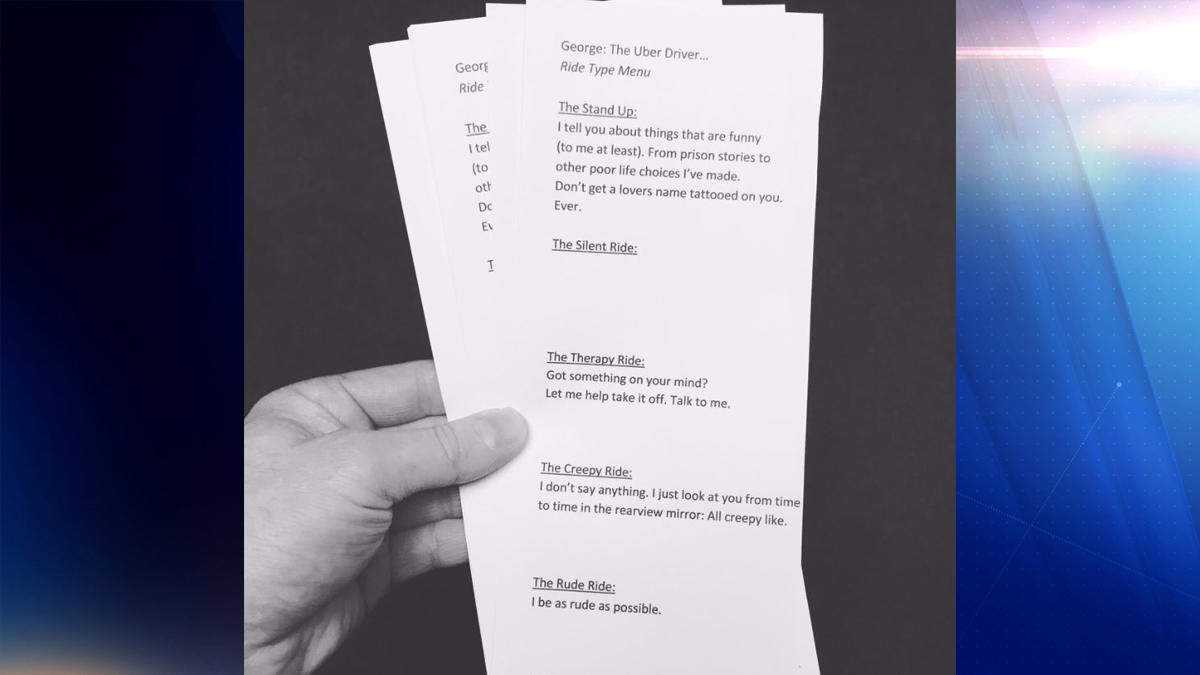 George: The Uber Driver...
Ride Type Menu
The Stand Up:
I tell you about things that are funny
(to me at least). From prison stories to
other poor life choices I've made.
Don't get a lovers name tattooed on you.
Ever.
The Silent Ride:
The Therapy Ride:
Got something on your mind?
Let me help take it off. Talk to me.
The Creepy Ride:
I don't say anything. I just look at you from time
to time in the rearview mirror: All creepy like.
The Rude Ride:
I be as rude as possible.
Georg
Ride
The
I tel
(to
oth
Do
Ev
T